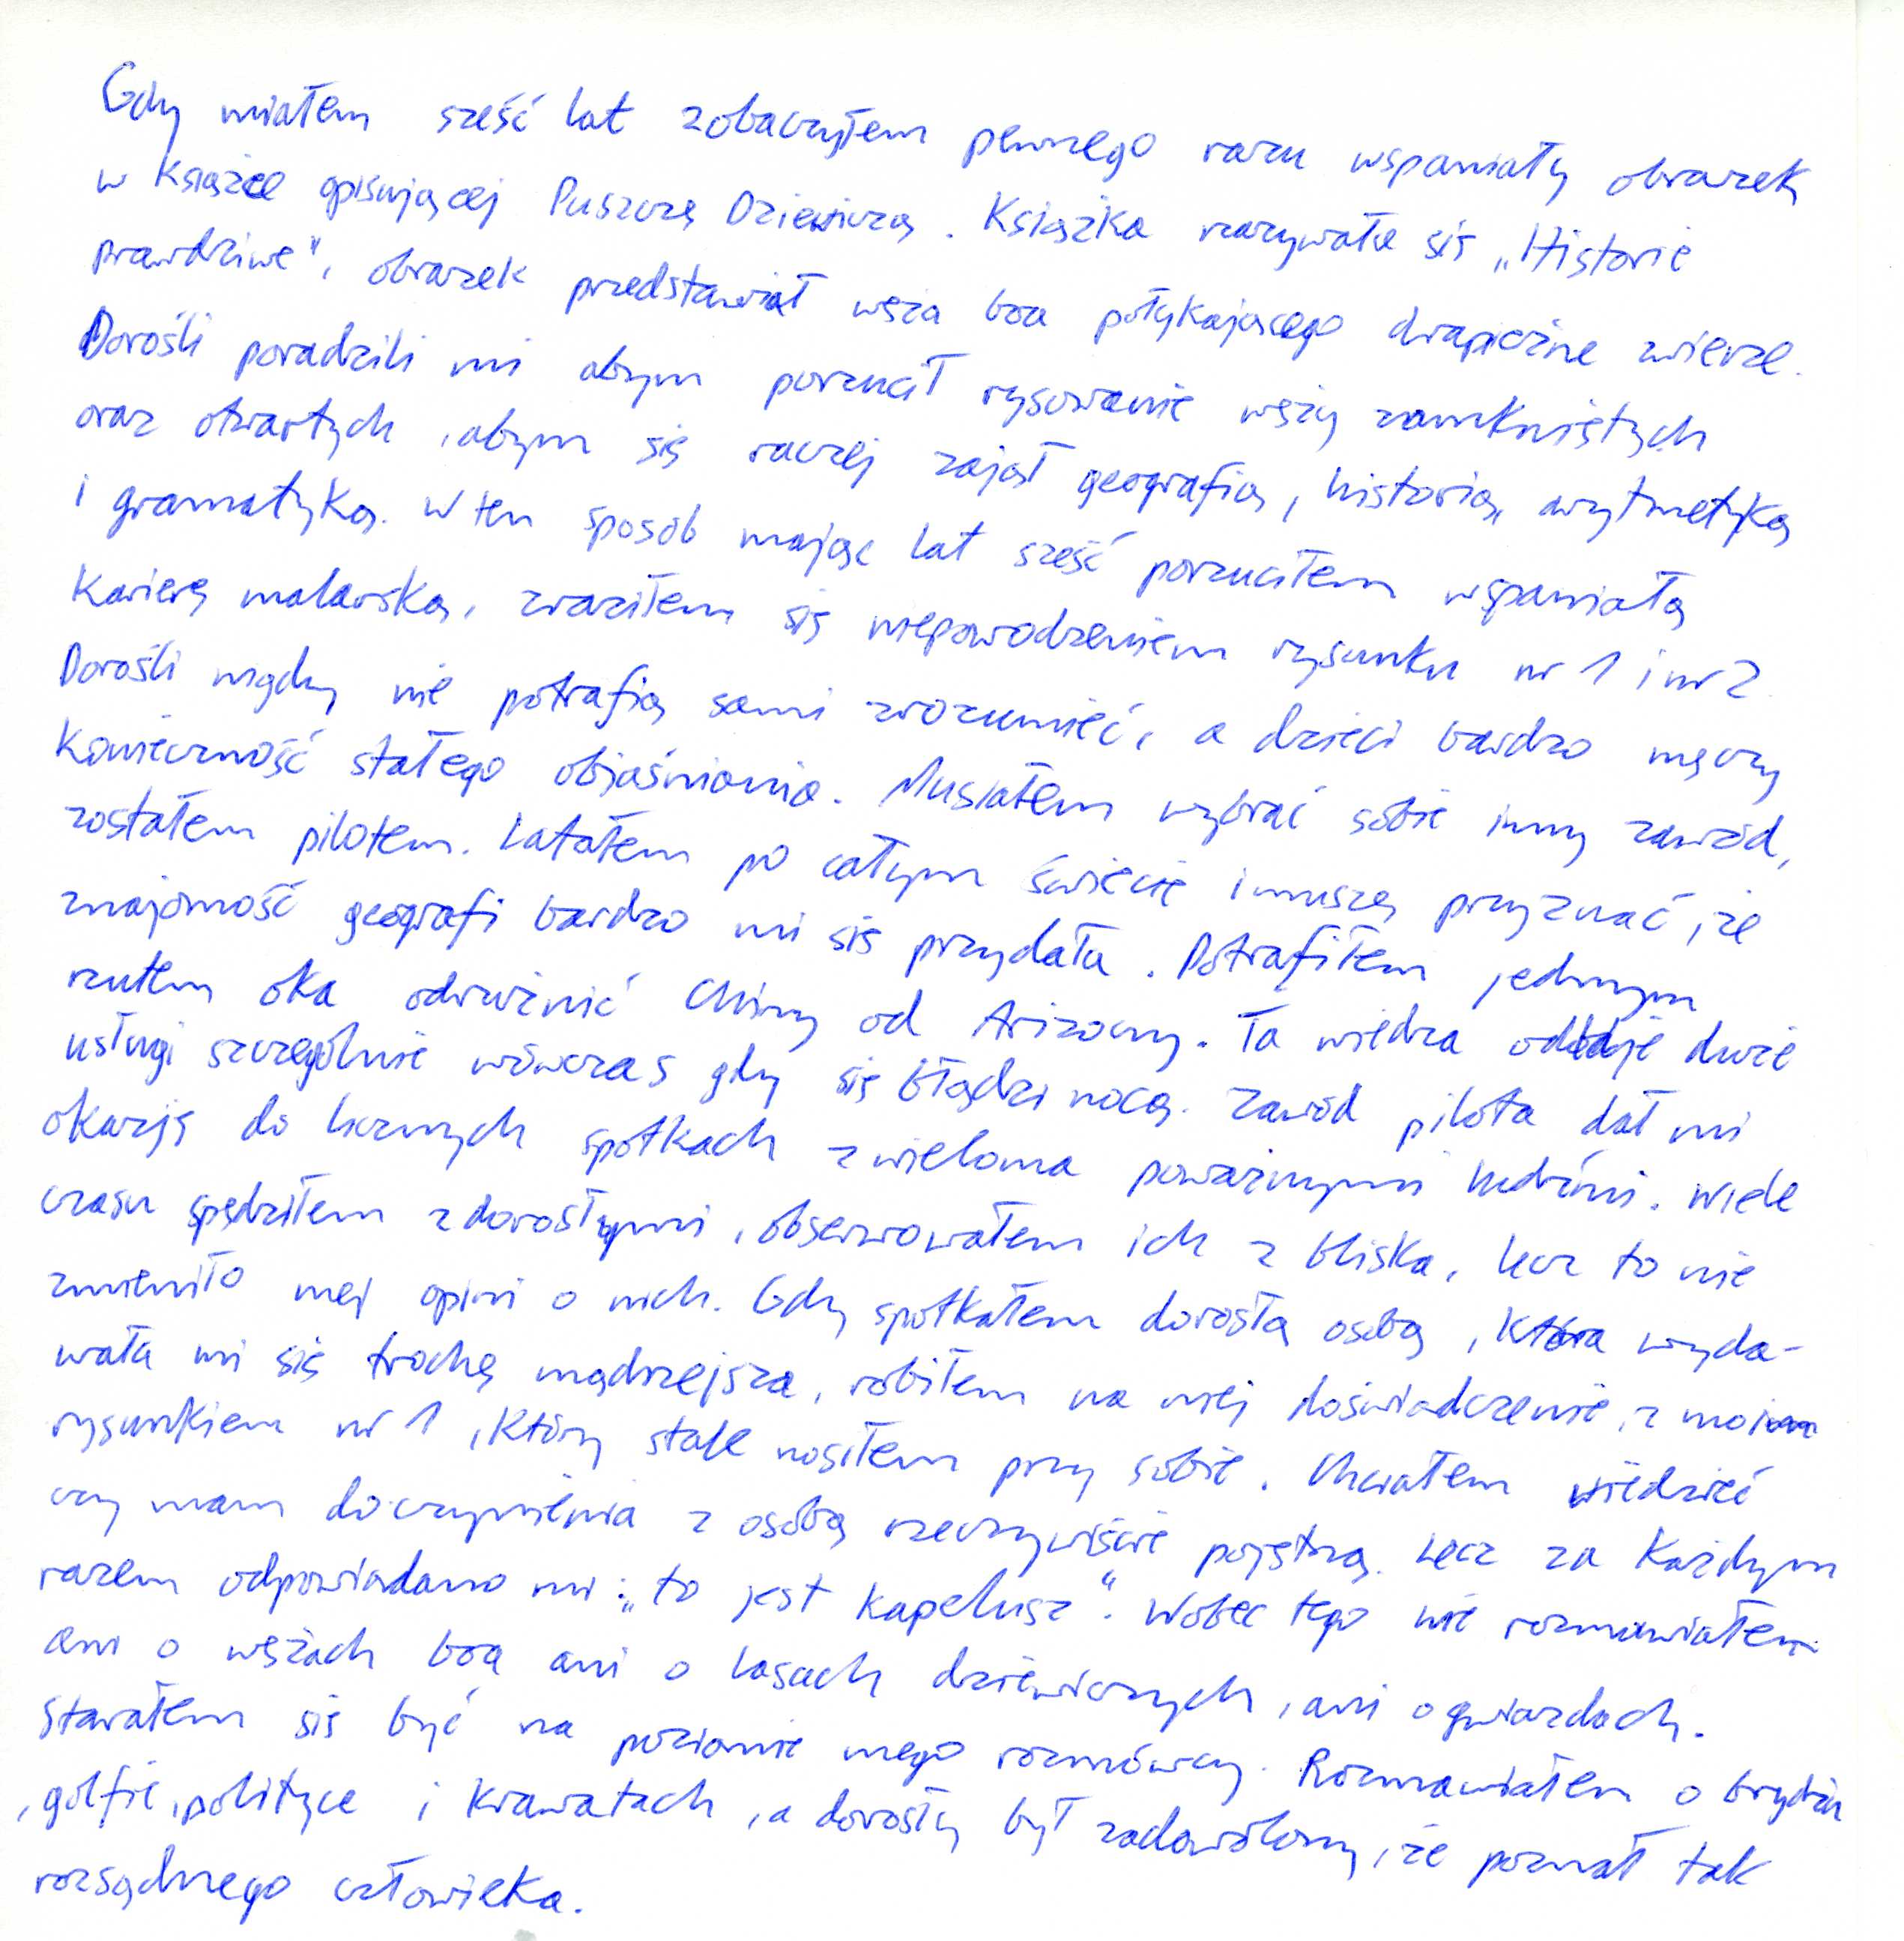 Gdy miałem sześć lat zobaczyłem pewnego razu wspaniały obrazek
w książce opisującej Puszczę Dziewiczą. Książka nazywała się „Historie
prawdziwe", obrazek przedstawiał węża boa połykającego drapieżne zwierze.
Dorośli poradzili mi abym porzucił rysowanie węży zamkniętych
oraz otwartych, abym się raczej zajął geografią, historią, arytmetyką
i gramatyką. W ten sposób mając lat sześć porzuciłem wspaniałą
karierę malarską, zraziłem się niepowodzeniem rysunku nr 1 i nr 2
Dorośli nigdy nie potrafią sami zrozumieć, a dzieci bardzo męczy
konieczność stałego objaśniania. Musiałem wybrać sobie inny zawód,
zostałem pilotem. Latałem po całym świecie i muszę przyznać, że
znajomość geografi bardzo mi się przydała. Potrafiłem jednym
rzutem oka odróżnić Chiny od Arizony. Ta wiedza oddaje duże
usługi szczególnie wówczas gdy się błądzi nocą. Zawód pilota dał mi
okazję do licznych spotkach z wieloma poważnymi ludźmi. Wiele
czasu spędziłem z dorosłymi, obserwowałem ich z bliska, lecz to nie
zmieniło mej opini o nich. Gdy spotkałem dorosłą osobą, która wyda-
wała mi się trochę mądrzejsza, robiłem na niej doświadczenie, z moim
rysunkiem nr 1, który stale nosiłem przy sobie. Chciałem wiedzieć
czy mam do czynienia z osobą rzeczywiście pojętną. Lecz za każdym
razem odpowiadano mi: „to jest kapelusz". Wobec tego nie rozmawiałem
ani o wężach boa ani o lasach dziewiczych, ani o gwiazdach.
Starałem się być na poziomie mego rozmówcy. Rozmawiałem o brydżu
, golfie, polityce i krawatach, a dorosły był zadowolony, że poznał tak
rozsądnego człowieka.